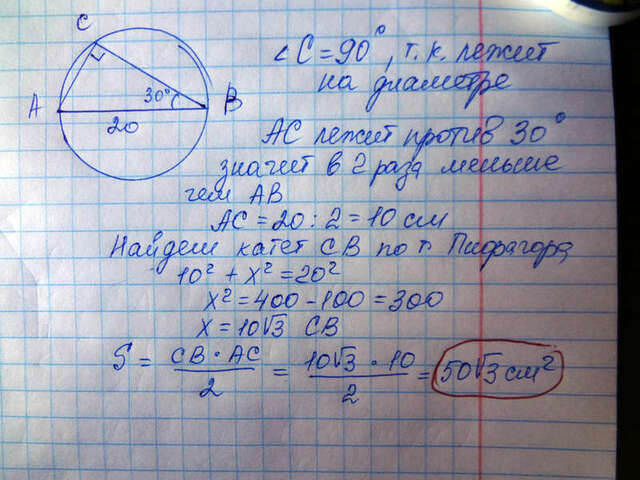 C
∠C = 90°, т.к. лежит
на диаметре
A 30° B
20
AC лежит против 30°
значит в 2 раза меньше
чем AB
AC = 20 : 2 = 10 см
Найдем катет CB по т. Пифагора
10² + x² = 20²
x² = 400 - 100 = 300
x = 10√3 CB
S = CB · AC / 2 = 10√3 · 10 / 2 = 50√3 см²